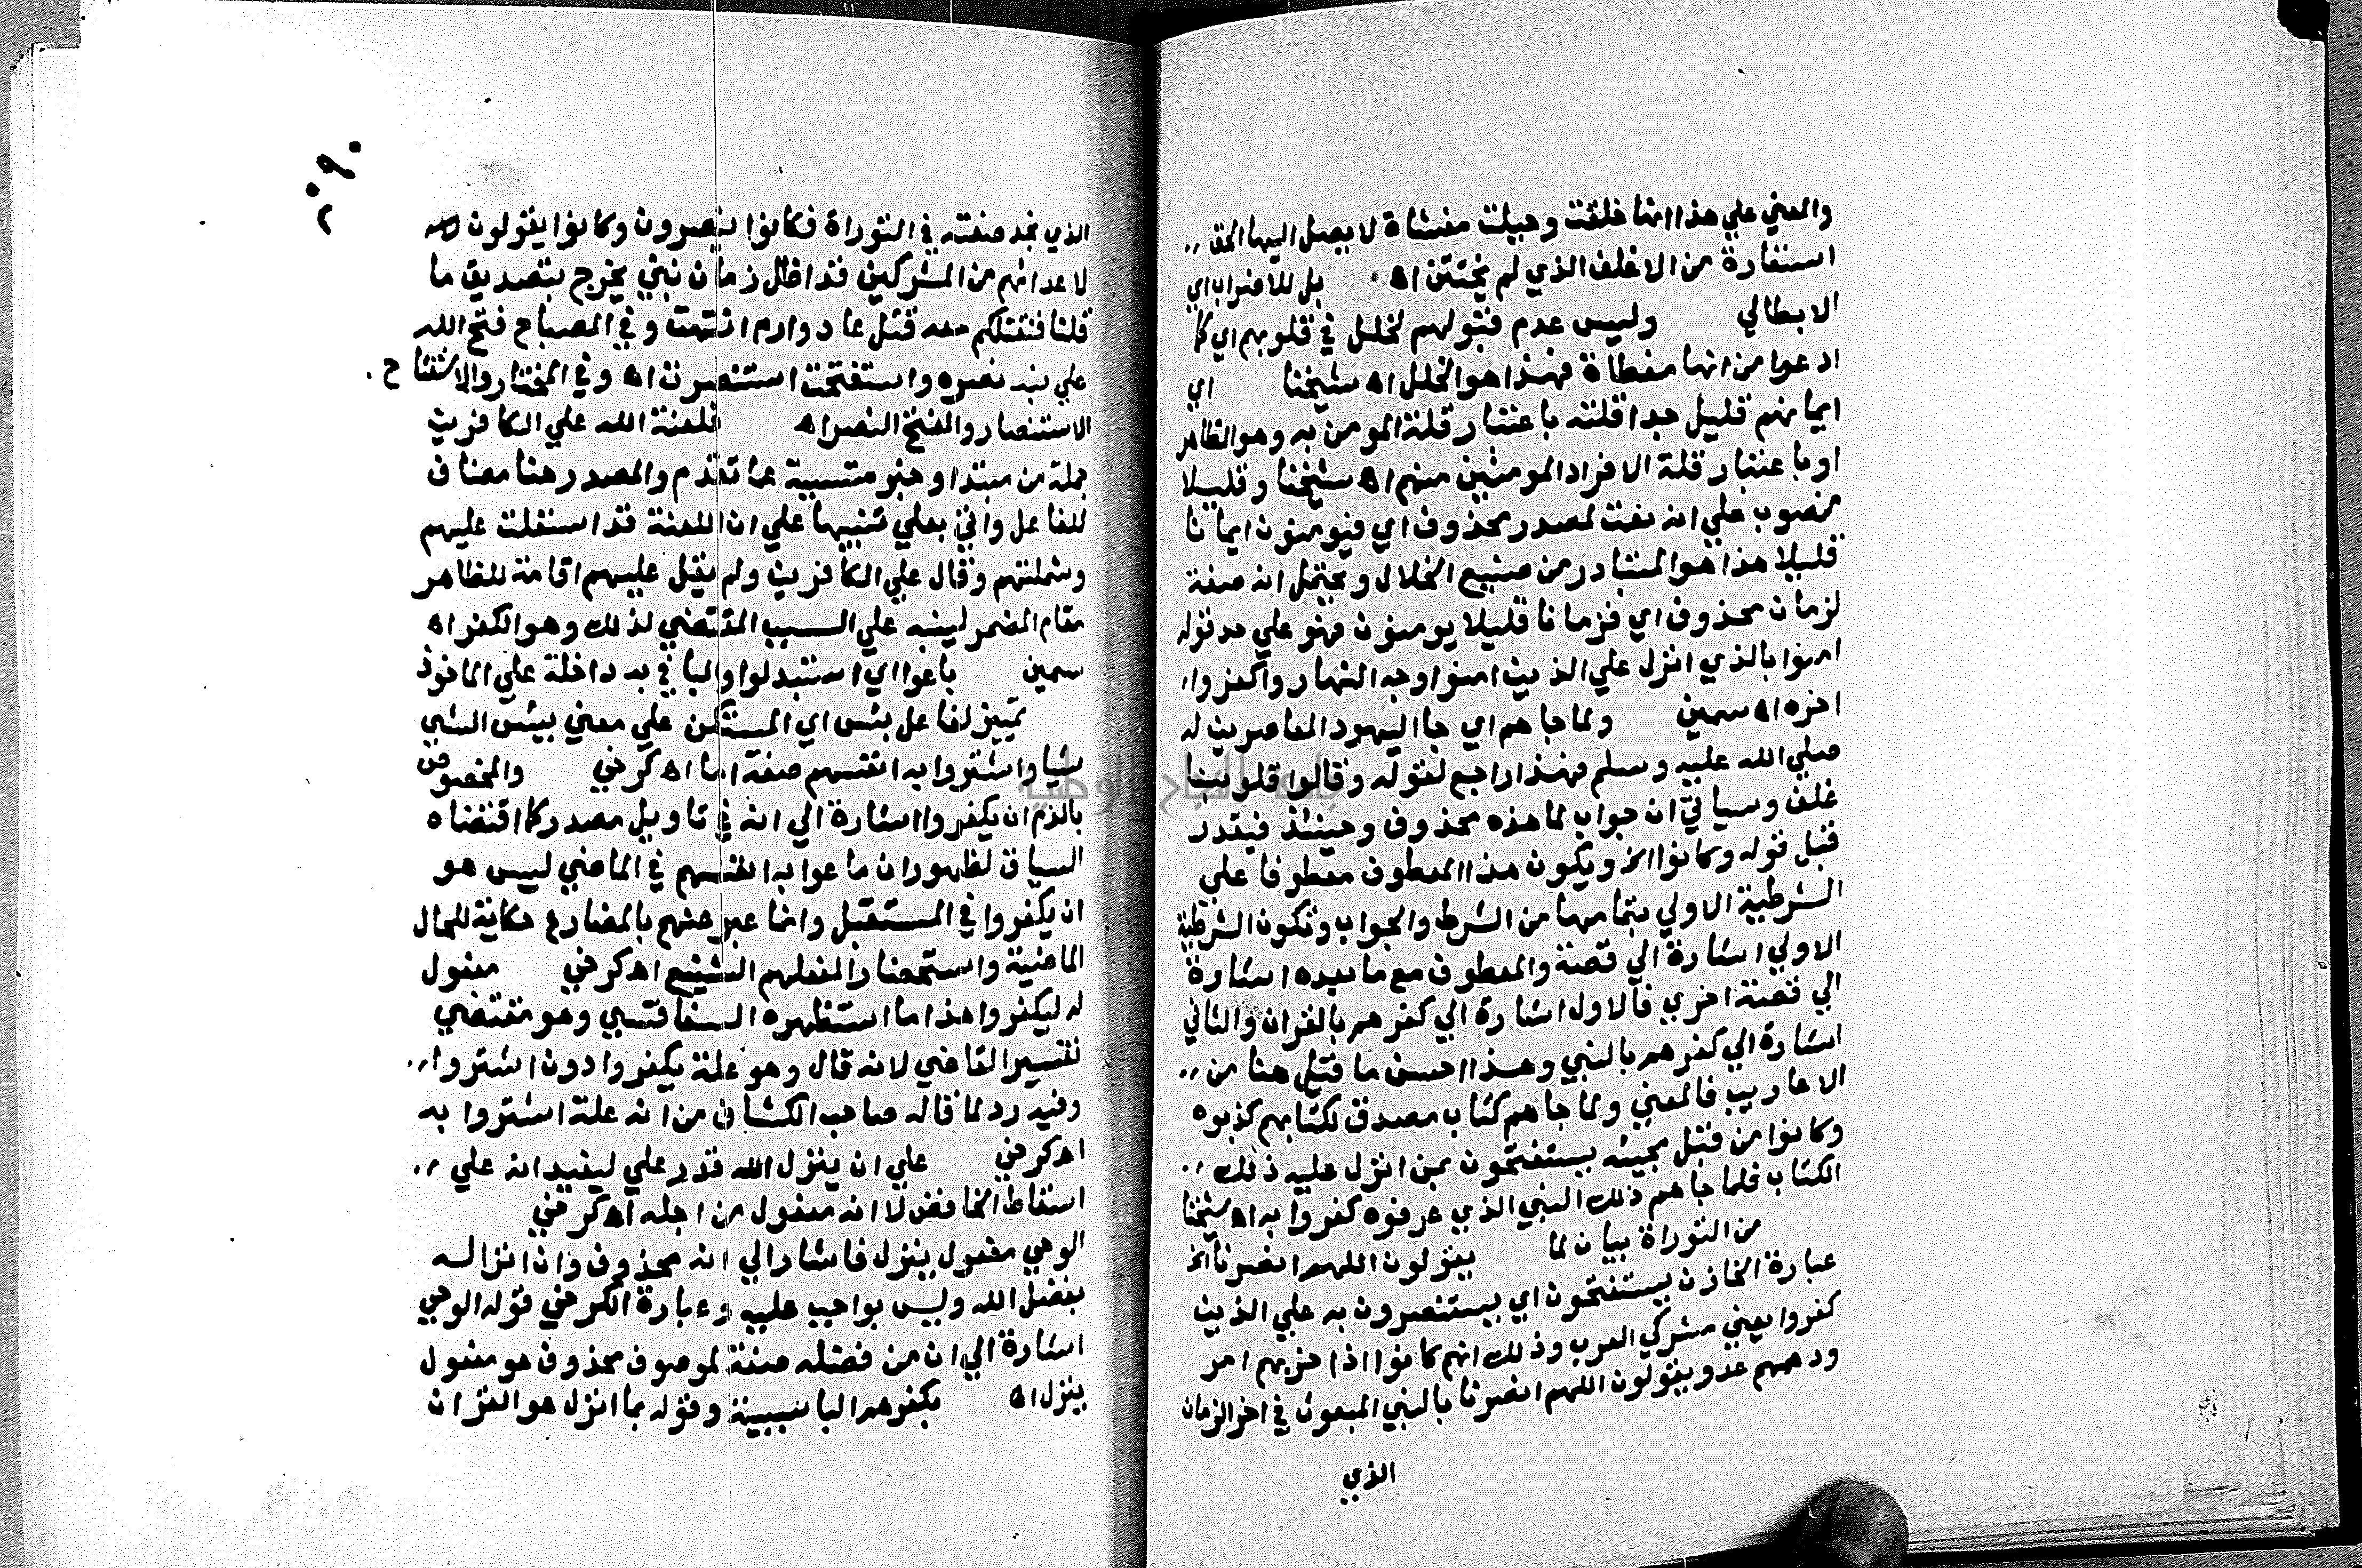 والمعني علي هذا انها خلقت وجبلت مغشاة لا يصل اليها الحق ,,
استغارة من الاغلف الذي لم يختتن اه بل للاضراب اي
الابطالي وليس عدم قبولهم لخلل في قلوبهم اي كما
ادعوا من انها مغطاة فهذا هو الخلل اه شيخنا اي
ايمانهم قليل جدا قلته باعتبار قلة المومن به وهو الظاهر
او باعتبار قلة الافراد المومنين منهم اه شيخنا وقليلا
منصوب علي انه نعت لمصدر محذوف اي فيومنون ايمانا
قليلا هذا هو المتبادر من صنيع الجلال ويحتمل انه صفة
لزمان محذوف اي فزمانا قليلا يومنون فهو علي حد قوله
امنوا بالذي انزل علي الذين امنوا وجه النهار واكفروا,
اخره اه سمين ولما جاهم اي جا اليهود المعاصرين له
صلي الله عليه وسلم فهذا راجع لقوله وقالوا قلوبنا
غلف وسياتي ان جواب لما هذه محذوف وحينئذ فيقدر
قبل قوله وكانوا الخ ويكون هذا المعطوف معطوفا علي
الشرطية الاولي بتمامها من الشرط والجواب وتكون الشرطية
الاولي اشارة الي قصة والمعطوف مع ما بعده اشارة
الي قصة اخري فالاول اشارة الي كفرهم بالقران والثاني
اشارة الي كفرهم بالنبي وهذا احسن ما قيل هنا من ,,
الاعاريب فالمعني ولما جاهم كتاب مصدق لكتابهم كذبوه
وكانوا من قبل مجيئه يستفتحون بمن انزل عليه ذلك ,,
الكتاب فلما جاهم ذلك النبي الذي عرفوه كفروا به اه شيخنا
من التوراة بيان لما يقولون اللهم انصرنا الخ
عبارة الخازن يستفتحون اي يستنصرون به علي الذين
كفروا يعني مشركي العرب وذلك انهم كانوا اذا حزبهم امر
ودهمهم عدو يقولون اللهم انصرنا بالنبي المبعوث في اخر الزمان
الذي
الذي نجد صفته في التوراة فكانوا ينصرون وكانوا يقولون
لاعدائهم من المشركين قد اظل زمان نبي يخرج بتصديق ما
قلنا فنقتلكم معه قتل عاد وارم انتهت وفي المصباح فتح الله
علي نبيه نصره واستفتحت استنصرت اه وفي المختار والاستفتاح .
الاستنصار والفتح النصر اه فلعنة الله علي الكافرين
جملة من مبتدا وخبر متسببة عما تقدم والمصدر هنا مضاف
للفاعل واتي بعلي تنبيها علي ان اللعنة قد استعلت عليهم
وشملتهم وقال علي الكافرين ولم يقل عليهم اقامة للظاهر
مقام المضمر لينبه علي السبب المقتضي لذلك وهو الكفر اه
سمين باعوا اي استبدلوا والبا في به داخلة علي الماخوذ
تمييز لفاعل بئس اي المستكن علي معني بيئس الشي
شيا واشتروا به انفسهم صفة لما اه كرخي والمخصوص
بالذم ان يكفروا اشارة الي انه في تاويل مصدر كما اقتضاه
السياق لظهور ان ما عوا به انفسهم في الماضي ليس هو
ان يكفروا في المستقبل وانما عبر عنهم بالمضارع حكاية للحال
الماضية واستحضارا لفعلهم الشنيع اه كرخي مفعول
له ليكفروا هذا ما استظهره السفاقسي وهو مقتضي
تفسير القاضي لانه قال وهو علة يكفروا دون اشتروا ,,
وفيه رد لما قاله صاحب الكشاف من انه علة اشتروا به
اه كرخي علي ان ينزل الله قدر علي ليفيد انه علي ,,
اسقاط الخافض لا انه مفعول من اجله اه كرخي
الوحي مفعول ينزل فاشار الي انه محذوف وان انزاله
بفضل الله وليس بواجب عليه وعبارة الكرخي قوله الوحي
اشارة الي ان من فضله صفة لموصوف محذوف هو مفعول
ينزل اه بكفرهم البا سببية وقوله بما انزل هو القران